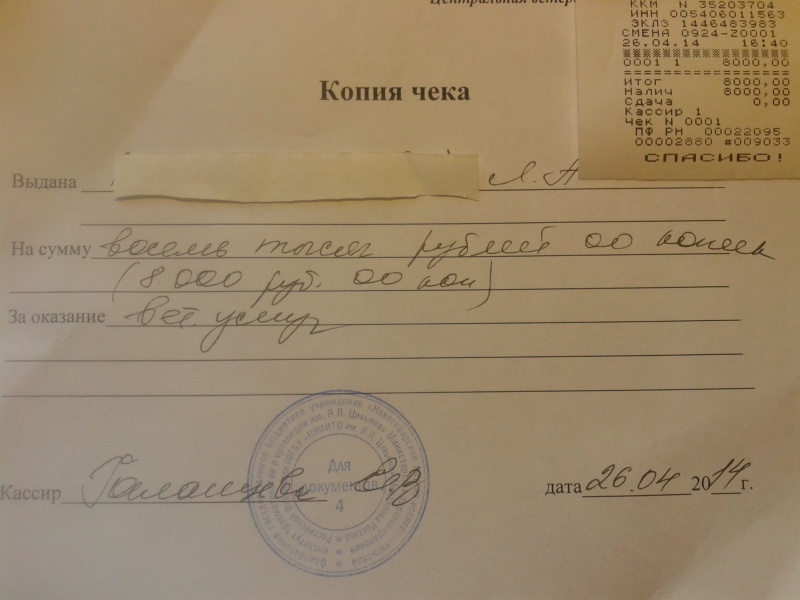 Центральная ветер
ККМ N 35203704
ИНН 005406011563
ЭКЛЗ 1446483983
СМЕНА 0924-Z0001
26.04.14 16:40
0001 1 8000,00
Итог 8000,00
Налич 8000,00
Сдача 0,00
Кассир 1
Чек N 0001
ПФ РН 00022095
00002880 #009033
СПАСИБО!
Копия чека
Выдана Л.А
На сумму восемь тысяч рублей 00 копеек
(8.000 руб. 00 коп)
За оказание вет. услуг
Для
документов
4
Кассир
дата 26.04 2014 г.